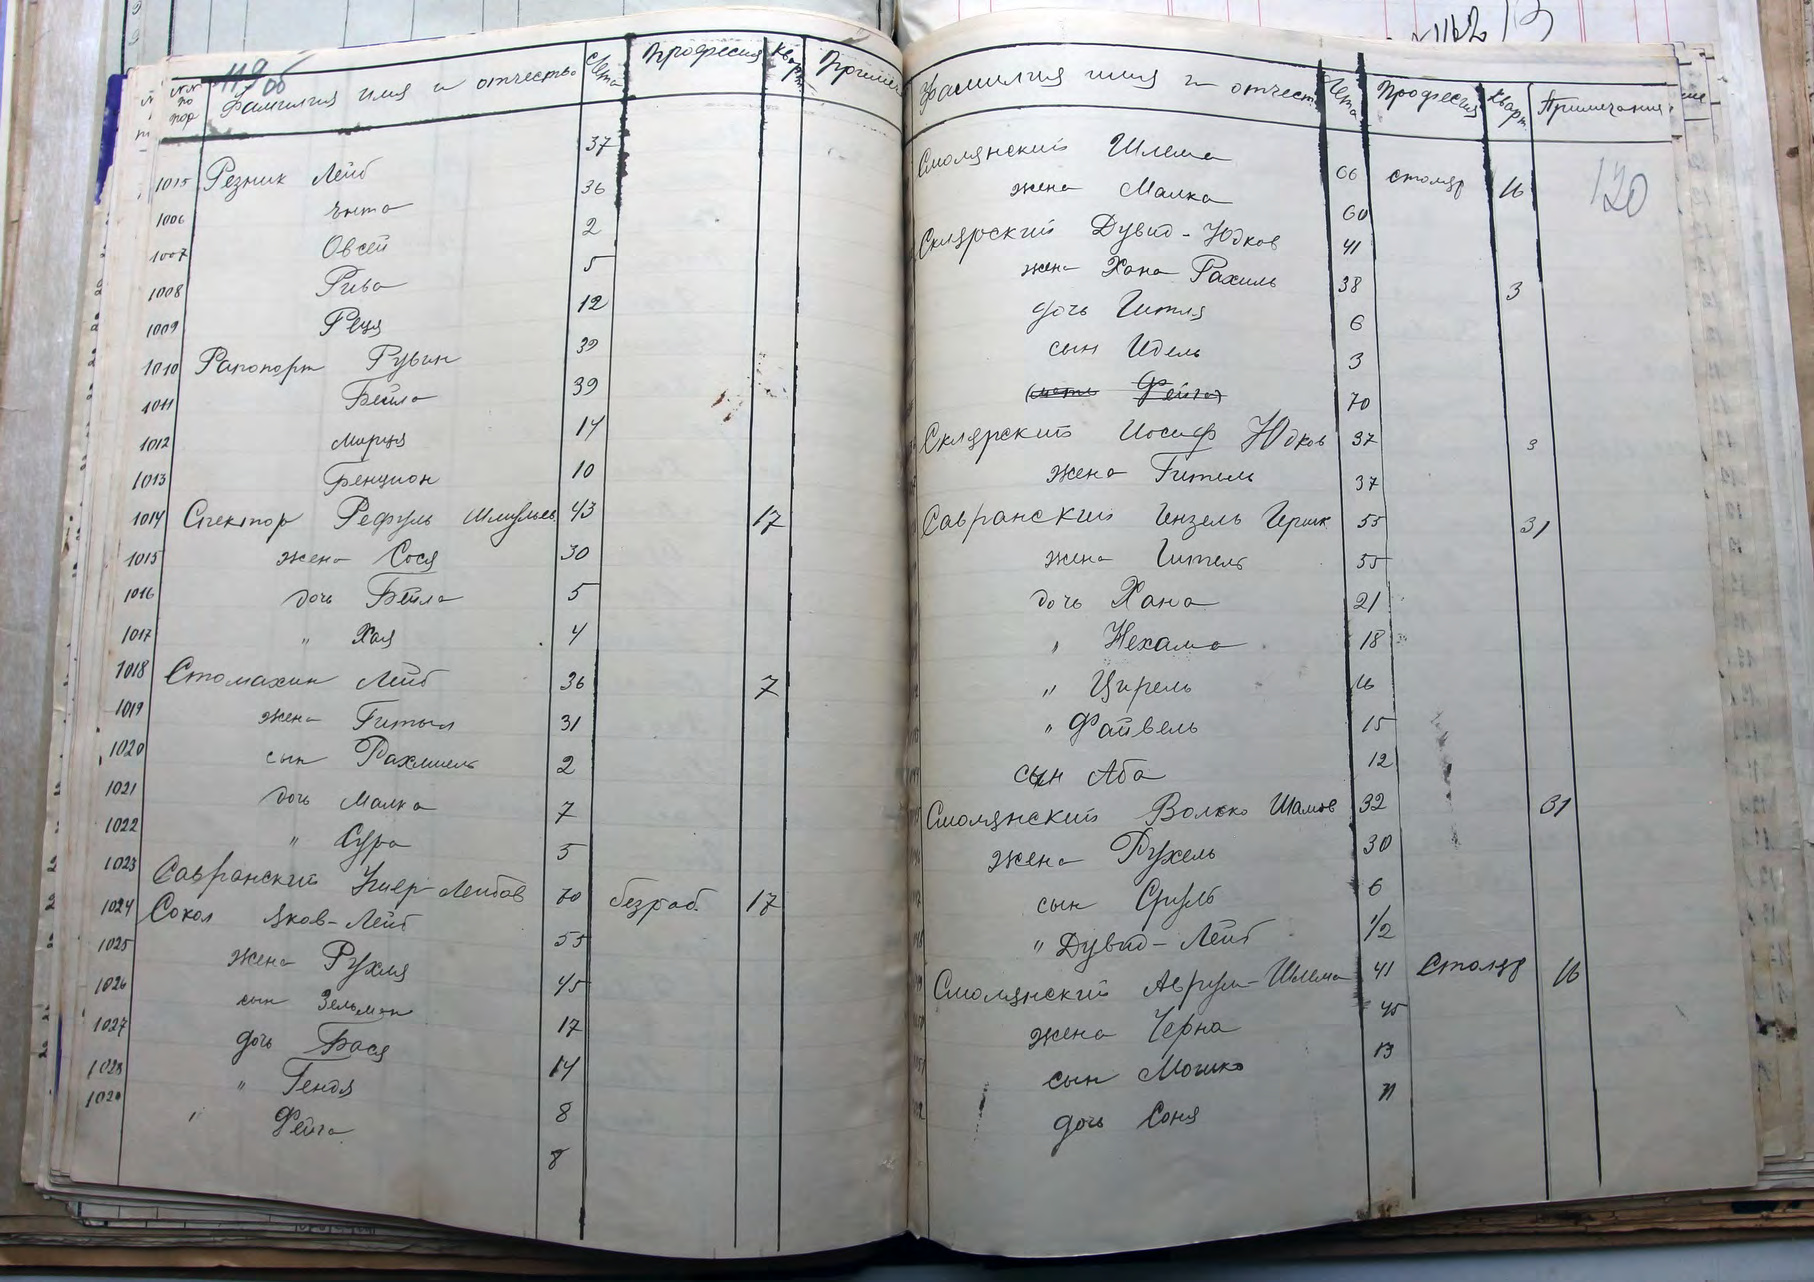 119 об
№№ по пор Фамилия имя и отчество Лета Професия Кварт Примеч
1015 Резник Лейб 37
1006 Ента 36
1007 Овсей 2
1008 Рива 5
1009 Реця 12
1010 Рапопорт Рувин 39
1011 Бейла 39
1012 Мирця 14
1013 Бенцион 10
1014 Спектор Рефуль Шмульев 43 17
1015 жена Сося 30
1016 дочь Бейла 5
1017 " Хая 4
1018 Стомахин Лейб 36 7
1019 жена Гитыл 31
1020 сын Рахмиель 2
1021 дочь Малка 7
1022 " Сура 5
1023 Савранский Ушер Лейбов 70 безраб. 17
1024 Сокол Яков-Лейб 55
1025 жена Рухля 45
1026 сын Зельман 17
1027 дочь Бася 14
1028 " Гендя 8
1029 " Фейга 8
120
Фамилия имя и отчест Лета Професия Кварт Примечание
Смолянский Шлема 66 столяр 16
жена Малка 60
Склярский Дувид-Юдков 41
жена Хана Рахиль 38 3
дочь Гитля 6
сын Идель 3
(мать Фейга) 70
Склярский Иосиф Юдков 37 3
жена Гитель 37
Савранский Ензель Гершк 55 31
жена Гитель 55
дочь Хана 21
" Нехама 18
" Цирель 16
" Файвель 15
сын Аба 12
Смолянский Волько Шамов 32 31
жена Рухель 30
сын Сруль 6
" Дувид-Лейб 1/2
Смолянский Аврум-Шлема 41 Столяр 16
жена Черна 45
сын Мошко 13
дочь Соня 11